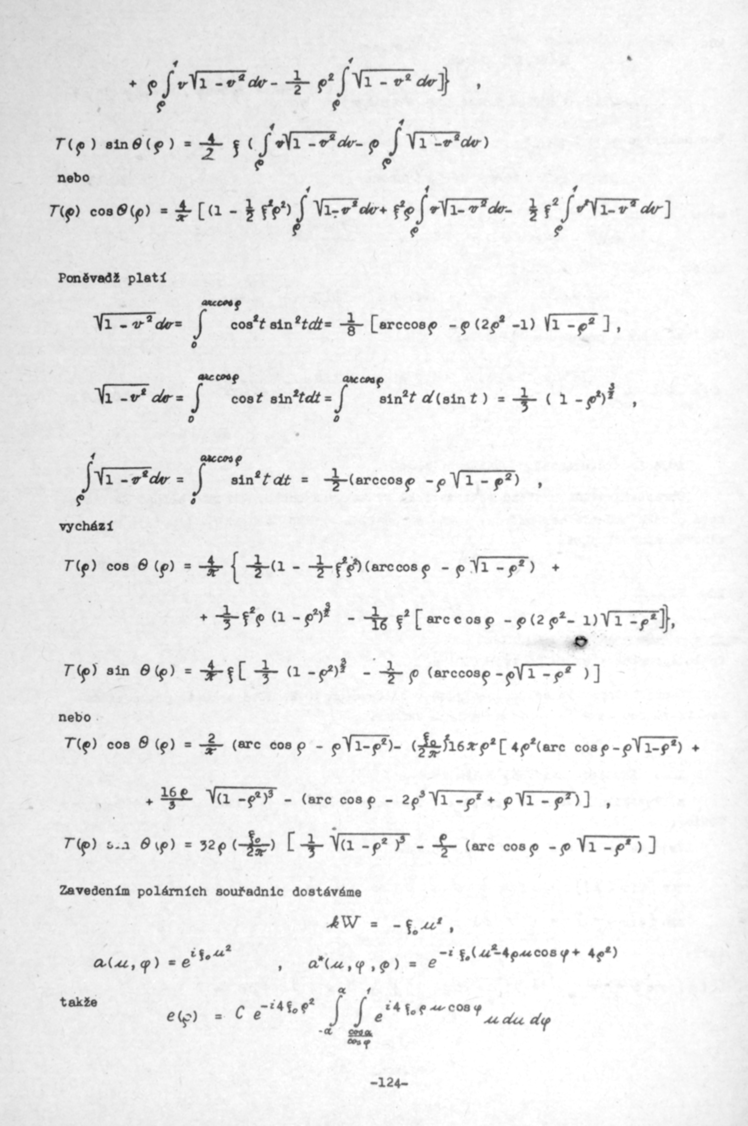 + ρ ∫_ρ^1 v√(1 - v²) dv - 1/2 ρ² ∫_ρ^1 √(1 - v²) dv]} ,
T(ρ) sin θ(ρ) = 4/2 ξ ( ∫_ρ^1 v√(1 - v²) dv - ρ ∫_ρ^1 √(1 - v²) dv)
nebo
T(ρ) cos θ(ρ) = 4/π [(1 - 1/2 ξ²ρ²) ∫_ρ^1 √(1 - v²) dv + ξ²ρ ∫_ρ^1 v√(1 - v²) dv - 1/2 ξ² ∫_ρ^1 v²√(1 - v²) dv]
Poněvadž platí
√(1 - v²) dv = ∫_0^{arccos ρ} cos²t sin²t dt = 1/8 [arccos ρ - ρ(2ρ² - 1) √(1 - ρ²)] ,
√(1 - v²) dv = ∫_0^{arccos ρ} cos t sin²t dt = ∫_0^{arccos ρ} sin²t d(sin t) = 1/3 (1 - ρ²)^{3/2} ,
∫_ρ^1 √(1 - v²) dv = ∫_0^{arccos ρ} sin²t dt = 1/2 (arccos ρ - ρ√(1 - ρ²)) ,
vychází
T(ρ) cos θ(ρ) = 4/π { 1/2 (1 - 1/2 ξ²ρ²)(arccos ρ - ρ√(1 - ρ²)) +
+ 1/3 ξ²ρ (1 - ρ²)^{3/2} - 1/16 ξ² [arccos ρ - ρ(2ρ² - 1)√(1 - ρ²)]},
T(ρ) sin θ(ρ) = 4/π ξ [ 1/3 (1 - ρ²)^{3/2} - 1/2 ρ (arccos ρ - ρ√(1 - ρ²))]
nebo
T(ρ) cos θ(ρ) = 2/π (arc cos ρ - ρ√(1-ρ²)) - (ξ₀/2π)² 16πρ² [4ρ²(arc cos ρ - ρ√(1-ρ²)) +
+ 16ρ/3 √((1 - ρ²)³) - (arc cos ρ - 2ρ³√(1 - ρ²) + ρ√(1 - ρ²))] ,
T(ρ) θ(ρ) = 32ρ (ξ₀/2π) [ 1/3 √((1 - ρ²)³) - ρ/2 (arc cos ρ - ρ√(1 - ρ²))]
Zavedením polárních souřadnic dostáváme
kW = - ξ₀u² ,
a(u, φ) = e^{iξ₀u²} , a*(u, φ, ρ) = e^{-iξ₀(u² - 4ρu cos φ + 4ρ²)}
takže
e(ρ) = C e^{-i4ξ₀ρ²} ∫_{-α}^{α} ∫_{cos α/cos φ}^{1} e^{i4ξ₀ρu cos φ} u du dφ
-124-